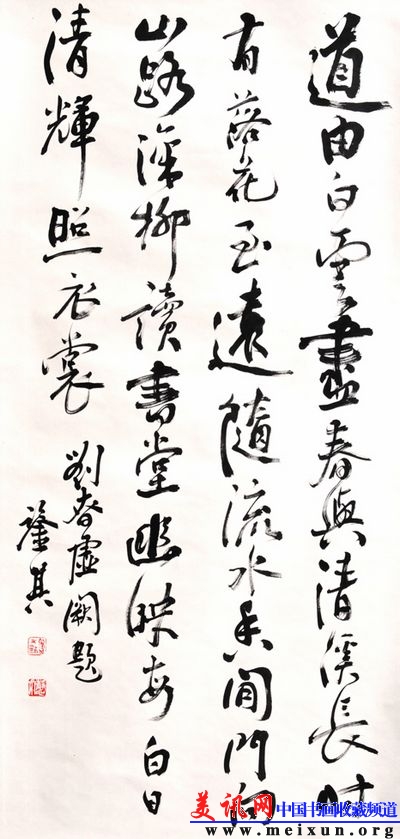 道由白雲盡春與清溪長時
有落花至遠隨流水香閒門向
山路深柳讀書堂幽映每白日
清輝照衣裳
劉眘虛闕題
其
美讯网 中国书画收藏频道
www.meixun.org